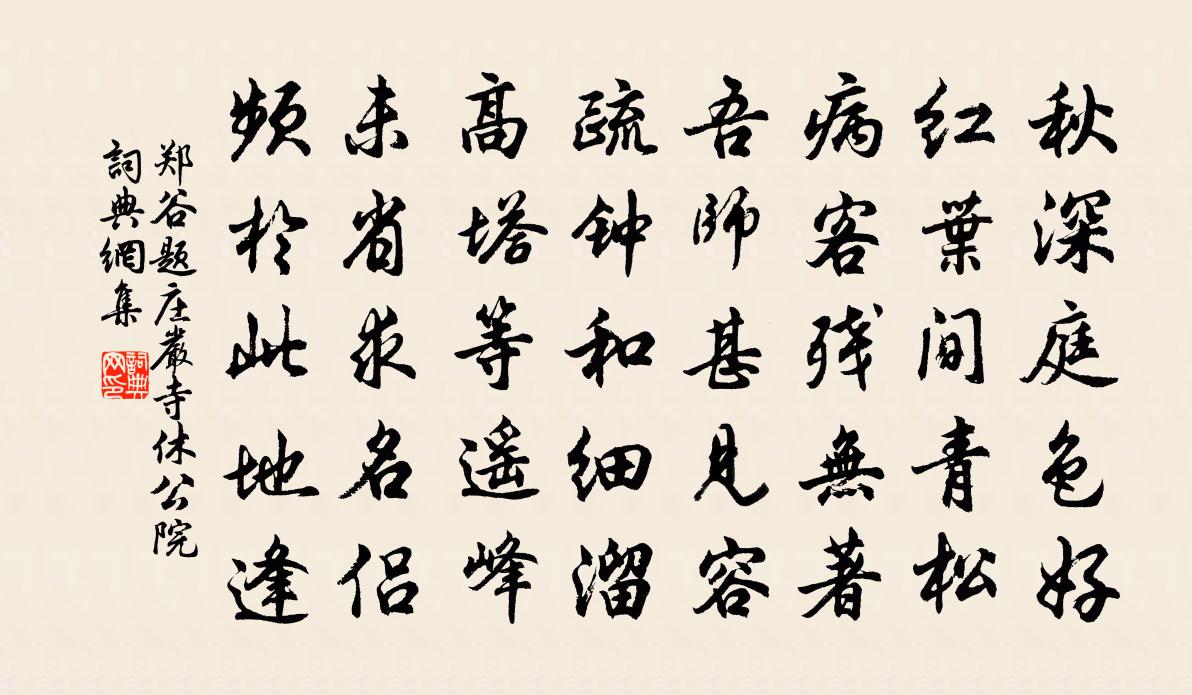 秋深庭色好
红葉间青松
病客残無著
吾師甚見容
疏钟和细溜
高塔等遥峰
未省求名侣
频於此地逢
郑谷题庄嚴寺休公院
詞典網集
詞典
网印